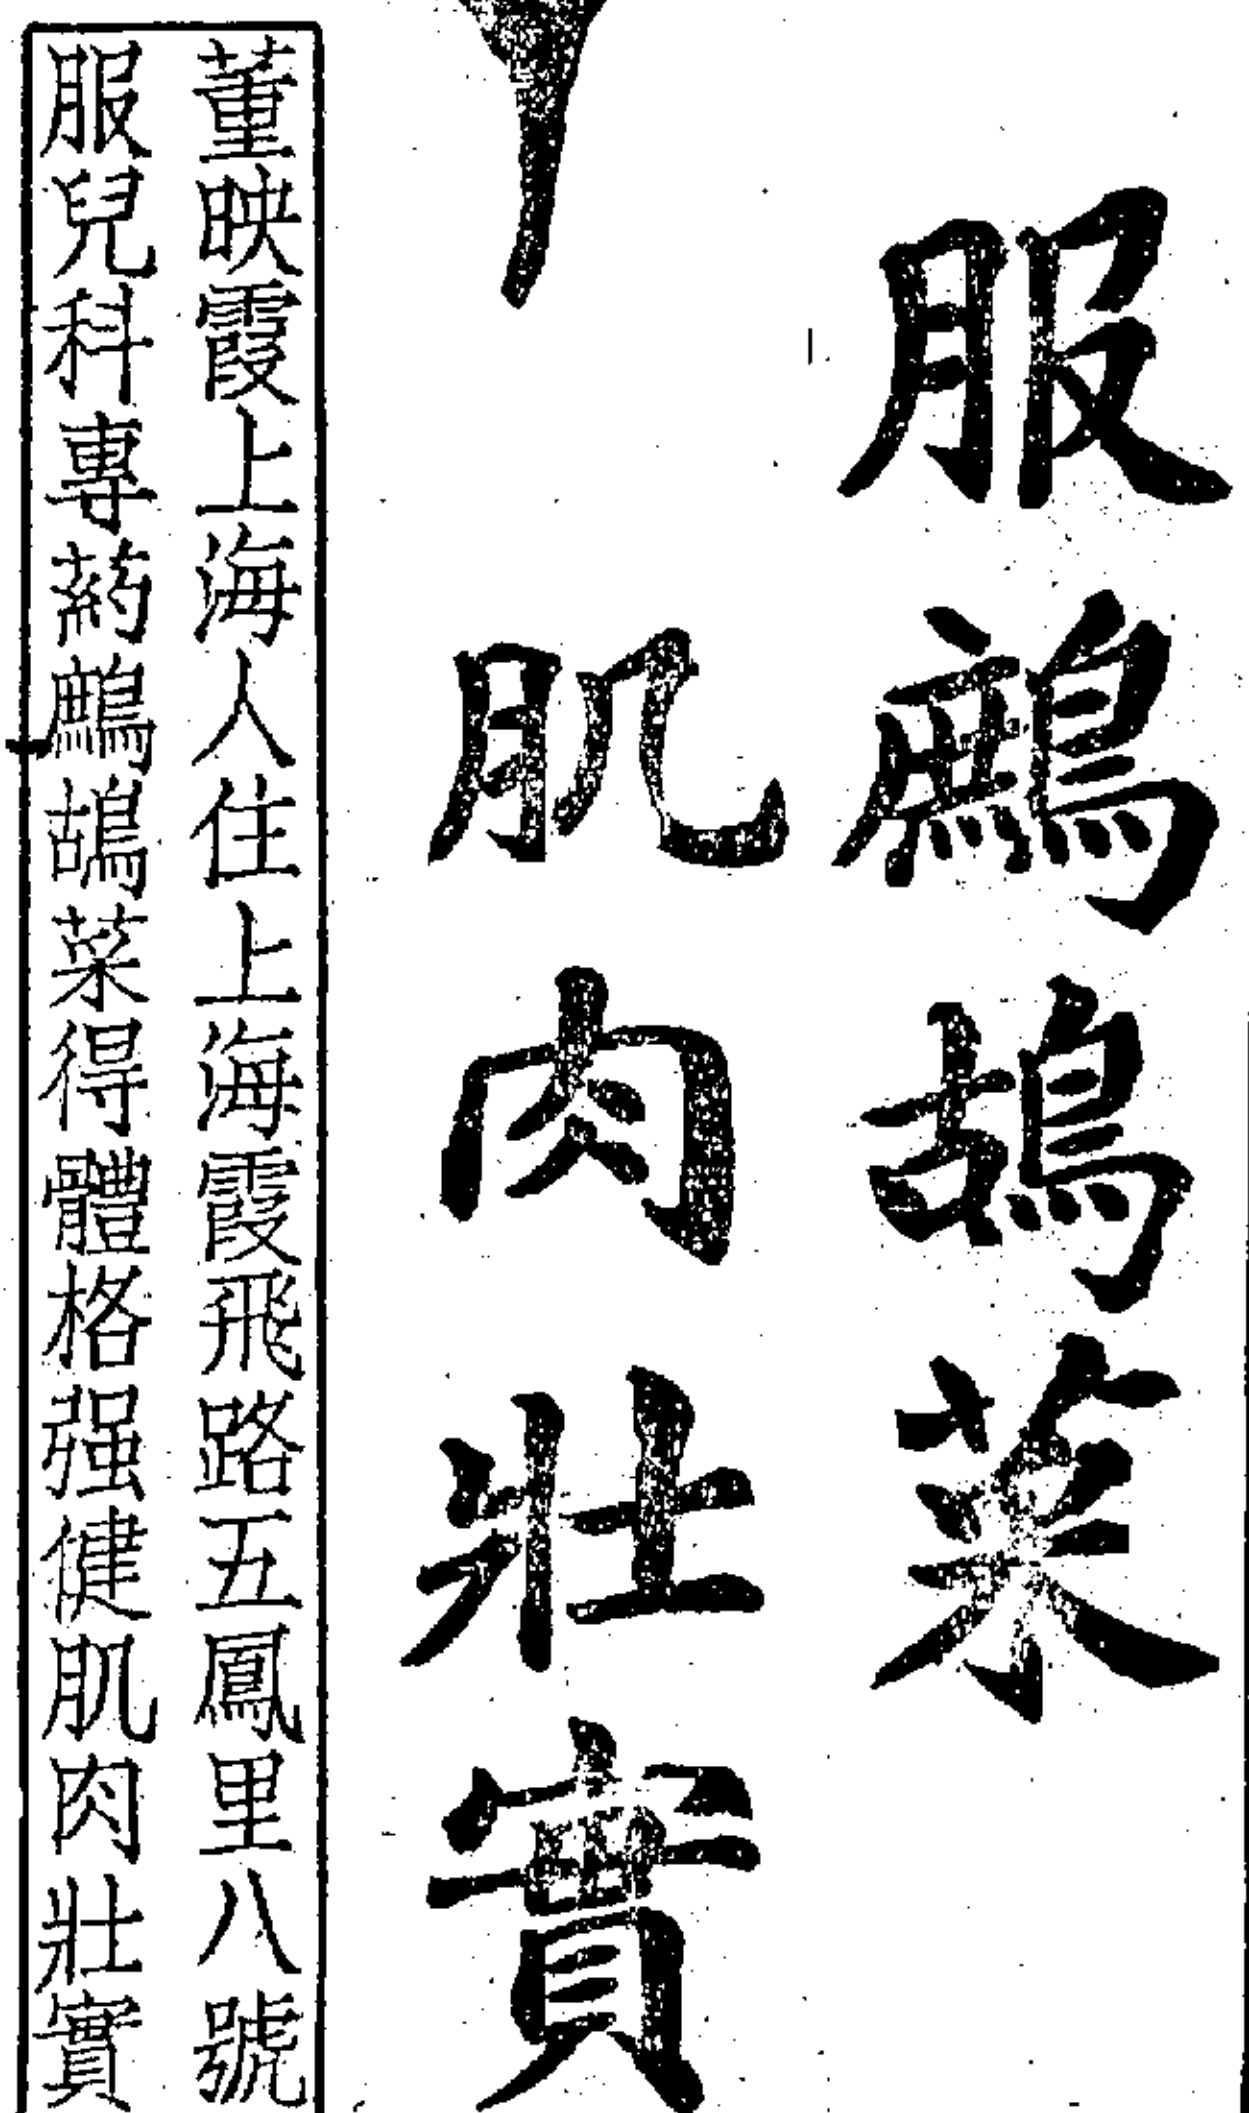 服鷓鴣菜
肌肉壯實
董映霞上海人住上海霞飛路五鳳里八號
服兒科專葯鷓鴣菜得體格强健肌肉壯實